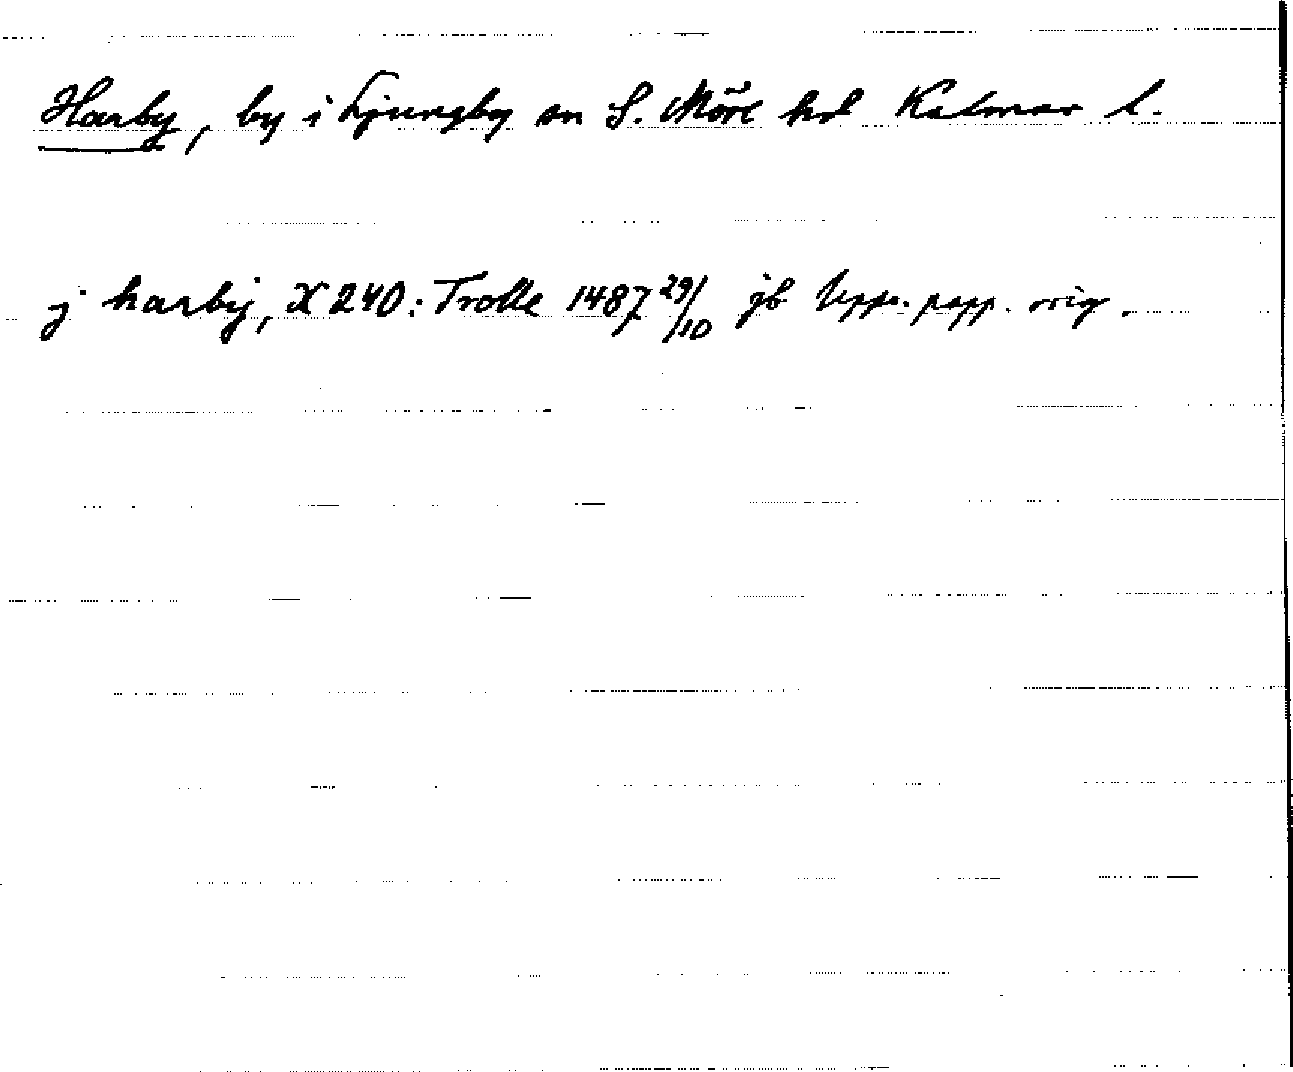 Harby, by i Ljungby sn S. Möre hd Kalmar l.
j harby, X 240: Trolle 1487 29/10 jb Upps. papp. orig.